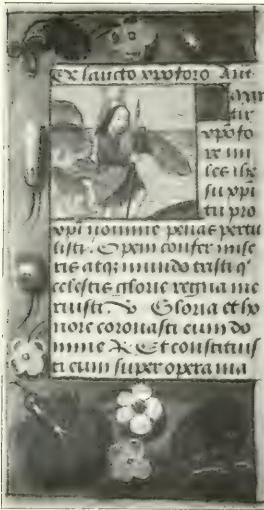 De sancto xpoforo Ant
Mar
tir
xpofo
re mi
les ihe
su xpi
tu pro
xpi nomine penas pertu
listi. Opem confer mise
ris atq; mundo tristi q'
celestis glorie regna me
ruisti. V Gloria et ho
nore coronasti eum do
mine R Et constituis
ti eum super opera ma